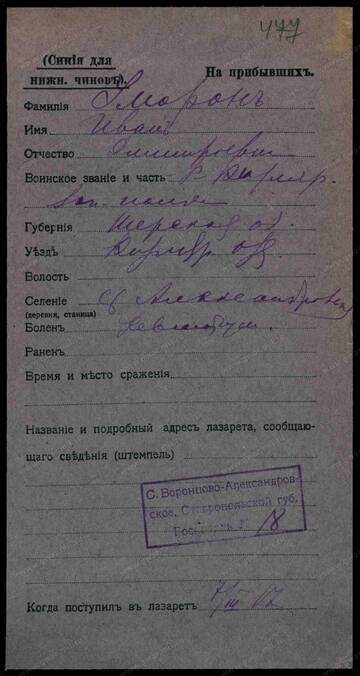 477
(Синія для
нижн. чиновъ).
На прибывшихъ.
Фамилія Сморонъ
Имя Иванъ
Отчество Дмитріевич
Воинское званіе и часть Р. Кизляр.
Губернія Терской об.
Уѣздъ Кизляр. отд.
Волость
Селеніе ст Александровск
(деревня, станица)
Боленъ
Раненъ
Время и мѣсто сраженія
Названіе и подробный адресъ лазарета, сообщаю-
щаго свѣдѣнія (штемпель)
С. Воронцово-Александров-
ское, Ставропольской губ.
Госпиталь № 18
Когда поступил въ лазаретъ 7/III 17